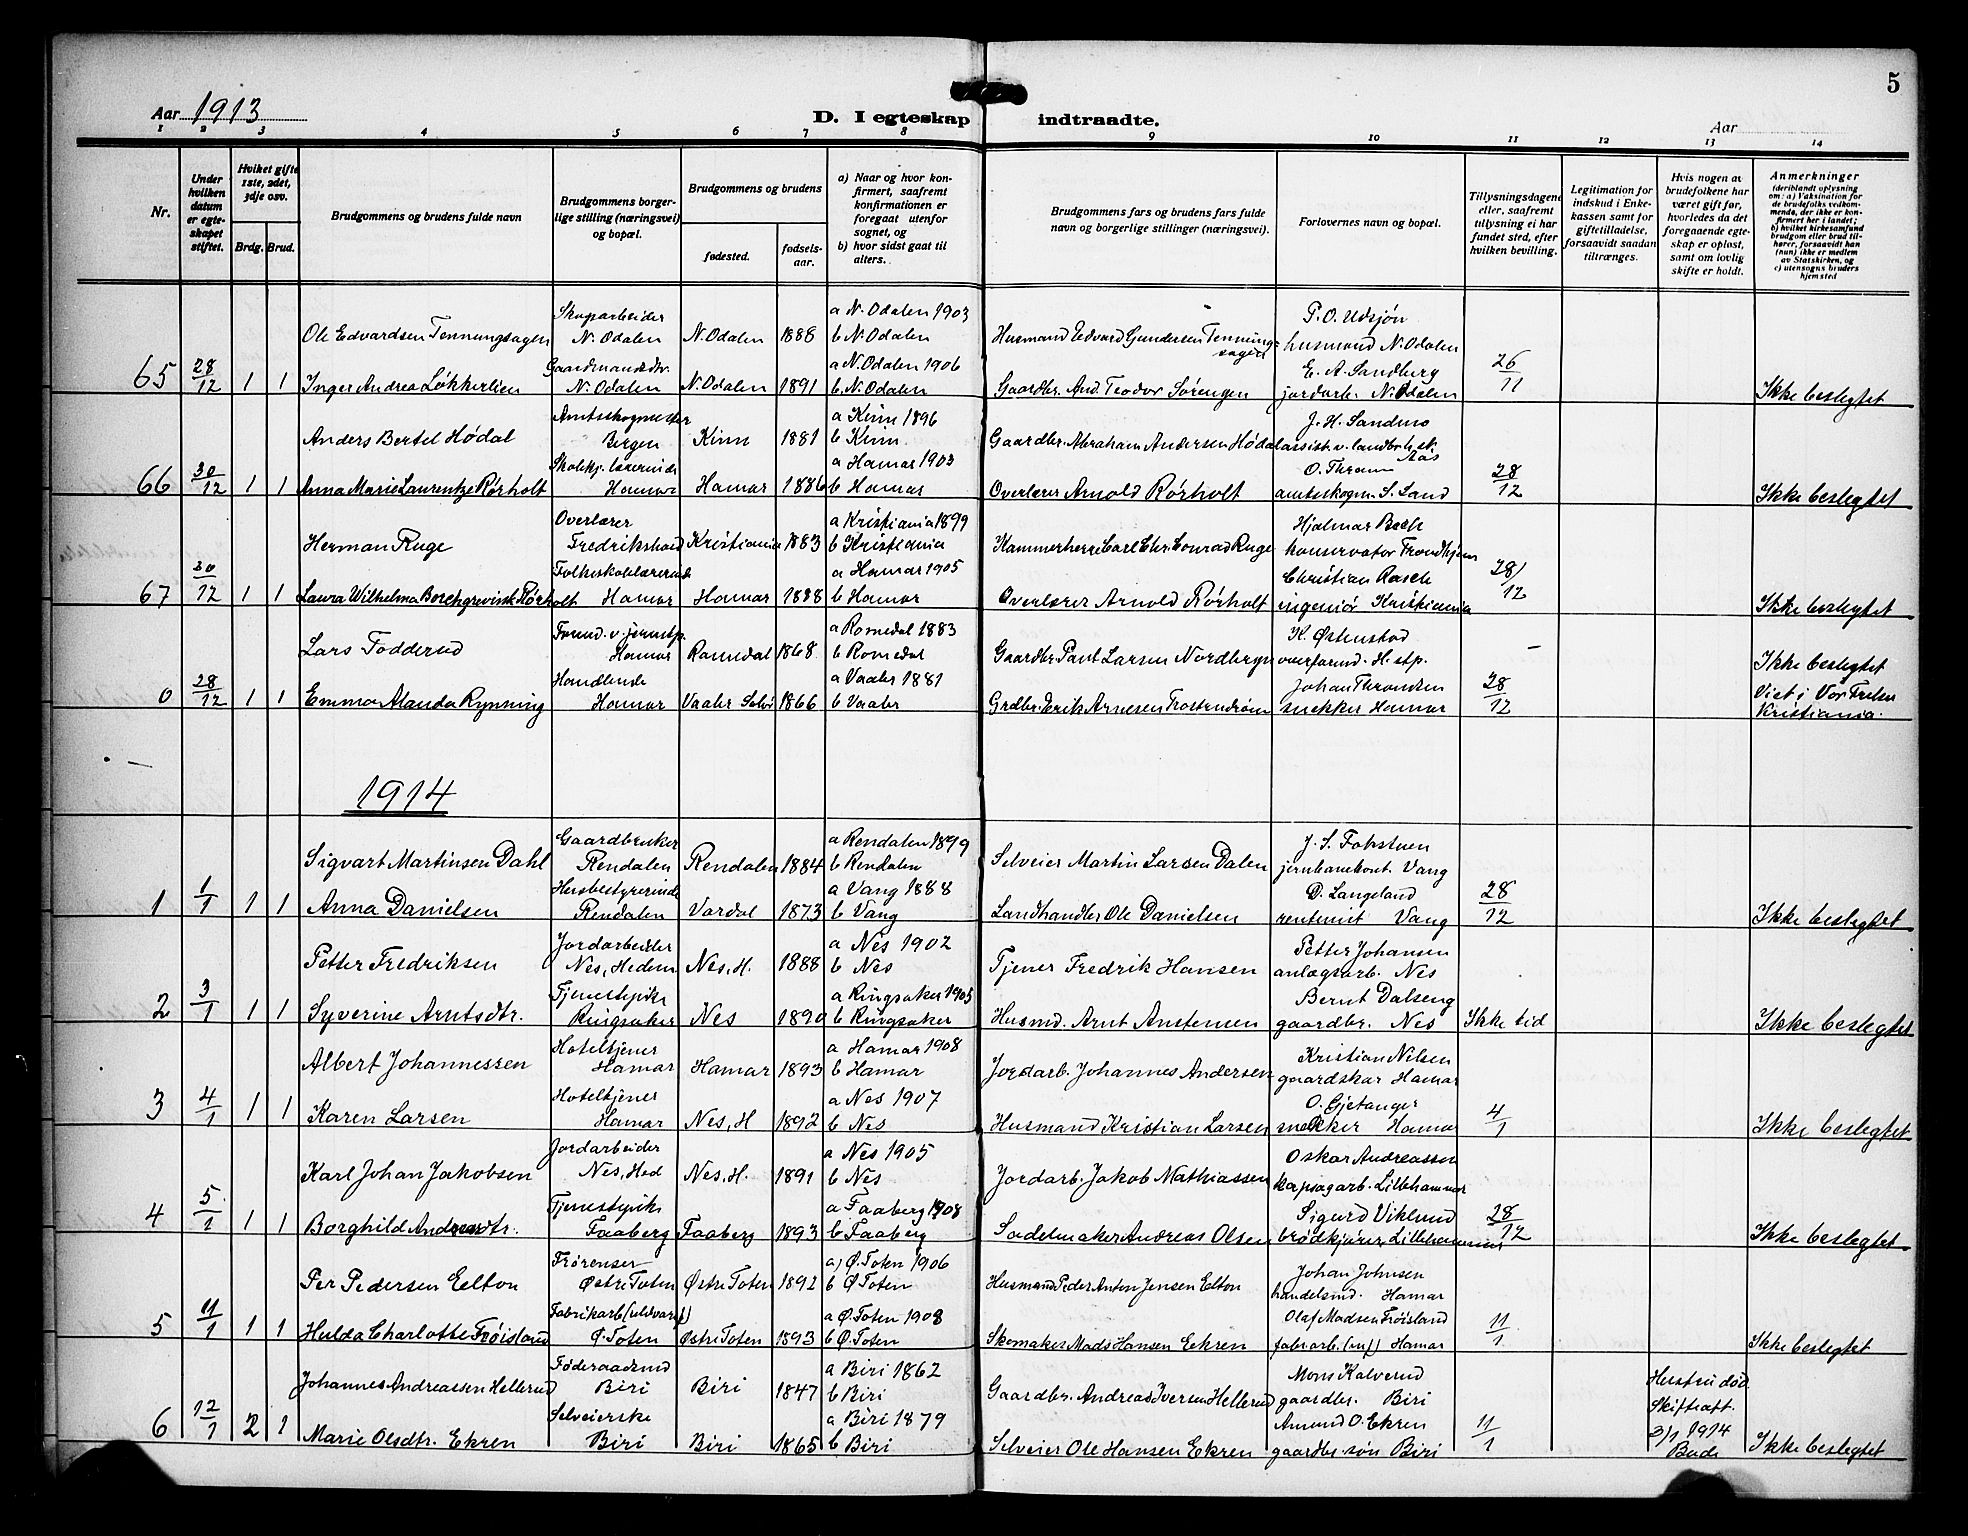 5
Aar 1913
D. I egteskap indtraadte.
Aar
1 2 3 4 5 6 7 8 9 10 11 12 13 14
Nr.
Under hvilken datum er egteskapet stiftet.
Hvilket gifte 1ste, 2det, 3dje osv.
Brdg. Brud.
Brudgommens og brudens fulde navn
Brudgommens borgerlige stilling (næringsvei) og bopæl.
Brudgommens og brudens
fødested.
fødselsaar.
a) Naar og hvor konfirmert, saafremt konfirmationen er foregaat utenfor sognet, og
b) hvor sidst gaat til alters.
Brudgommens fars og brudens fars fulde navn og borgerlige stillinger (næringsvei).
Forlovernes navn og bopæl.
Tillysningsdagene eller, saafremt tillysning ei har fundet sted, efter hvilken bevilling.
Legitimation for indskud i Enkekassen samt for giftetilladelse, forsaavidt saadan tiltrænges.
Hvis nogen av brudefolkene har været gift før, hvorledes da det foregaaende egteskap er opløst, samt om lovlig skifte er holdt.
Anmerkninger
(deriblandt oplysning om: a) Vaksination for de brudefolks vedkommende, der ikke er konfirmert her i landet; b) hvilket kirkesamfund brudgom eller brud tilhører, forsaavidt han (hun) ikke er medlem av Statskirken, og c) utensogns bruders hjemsted
Ole Edvardsen Tennungsagen Skogarbeider N. Odalen N. Odalen 1888 a N. Odalen 1903 b N. Odalen Husmand Edvard Gundersen Tennungsagen P. O. Udsjøn husmand N. Odalen
65 28/12 1 1 Inger Andrea Løkkerlien Gaardmandsdtr. N. Odalen N. Odalen 1891 a N. Odalen 1906 b N. Odalen Gaardbr. And. Teodor Sørengen E. A. Sandberg jordarb. N. Odalen 26/11 Ikke beslegtet
Anders Bertel Hødal Amtsskogmester Bergen Kinn 1881 a Kinn 1896 b Kinn Gaardbr. Abraham Andersen Hødal J. H. Sandmo assist. v. landbr.h.sk. Aas
66 30/12 1 1 Anna Marie Laurentze Rørholt Skolekj. lærerinde Hamar Hamar 1886 a Hamar 1903 b Hamar Overlærer Arnold Rørholt O. Thram amtsskogm. S. Land 28/12 Ikke beslegtet
Herman Ruge Overlærer Fredrikshald Kristiania 1883 a Kristiania 1899 b Kristiania Kammerherre Carl Chr. Conrad Ruge Hjalmar Bach konservator Trondhjem
67 30/12 1 1 Laura Wilhelma Borchgrevink Rørholt Folkeskolelærerinde Hamar Hamar 1888 a Hamar 1905 b Hamar Overlærer Arnold Rørholt Christian Rasch ingeniør Kristiania 28/12 Ikke beslegtet
Lars Fodderud Formd. v. jernstp. Hamar Romedal 1868 a Romedal 1883 b Romedal Gaardbr. Paul Larsen Nordbergn K. Østenstad overformd. H. stp. - Ikke beslegtet
0 28/12 1 1 Emma Alanda Rynning Handlende Hamar Vaaler Solør 1866 a Vaaler 1881 b Vaaler Grdbr. Erik Arnesen Frostendrøm Johan Throndsen snekker Hamar 28/12 Viet i Vor Frelser Kristiania.
1914
Sigvart Martinsen Dahl Gaardbruker Rendalen Rendalen 1884 a Rendalen 1899 b Rendalen Selveier Martin Larsen Dalen J. S. Fokstuen jernbanekont. Vang
1 1/1 1 1 Anna Danielsen Husbestyrerinde Rendalen Vardal 1873 a Vang 1888 b Vang Landhandler Ole Danielsen D. Langeland rentenist Vang 28/12 Ikke beslegtet
Petter Fredriksen Jordarbeider Nes, Hedem Nes, H. 1888 a Nes 1902 b Nes Tjener Fredrik Hansen Petter Johansen anlægsarb. Nes
2 3/1 1 1 Syverine Arntsdtr. Tjenestepike Ringsaker Nes 1890 a Ringsaker 1905 b Ringsaker Husmd. Arnt Anstensen Bernt Dalseng gaardbr. Nes Ikke tid Ikke beslegtet
Albert Johannessen Hoteltjener Hamar Hamar 1893 a Hamar 1908 b Hamar Jordarb. Johannes Andersen Kristian Nilsen gaardskar Hamar
3 4/1 1 1 Karen Larsen Hoteltjener Hamar Nes, H 1892 a Nes 1907 b Nes Husmand Kristian Larsen O. Gjetanger snekker Hamar 4/1 Ikke beslegtet
Karl Johan Jakobsen Jordarbeider Nes, Hed Nes, H. 1891 a Nes 1905 b Nes Jordarb. Jakob Mathiassen Oskar Andreassen kapsagarb. Lillehammer
4 5/1 1 1 Borghild Andreasdtr. Tjenestepike Faaberg Faaberg 1893 a Faaberg 1908 b Faaberg Sadelmaker Andreas Olsen Sigurd Viklund brødkjører Lillehammer 28/12 Ikke beslegtet
Per Pedersen Eelton Frørenser Østre Toten Østre Toten 1892 a) Ø. Toten 1906 b Ø. Toten Husmand Peder Anton Jensen Eelton Johan Johnsen handelsmd. Hamar
5 11/1 1 1 Hulda Charlotte Frøisland Fabrikarb (uldvaref) Ø. Toten Østre Toten 1893 a Ø. Toten 1908 b Ø. Toten Skomaker Mads Hansen Ekren Olaf Madsen Frøisland fabrarb. (uf) Hamar 11/1 Ikke beslegtet
Johannes Andreassen Hellerud Føderaadsmd Biri Biri 1847 a Biri 1862 b Biri Gaardbr. Andreas Iversen Hellerud Mons Kalverud gaardbr. Biri Hustru død Skifteatt.
6 12/1 2 1 Marie Olsdtr. Ekren Selveierske Biri Biri 1865 a Biri 1879 b Biri Selveier Ole Hansen Ekren Amund O. Ekren gaardbr. søn Biri 11/1 3/1 1914 Ikke beslegtet